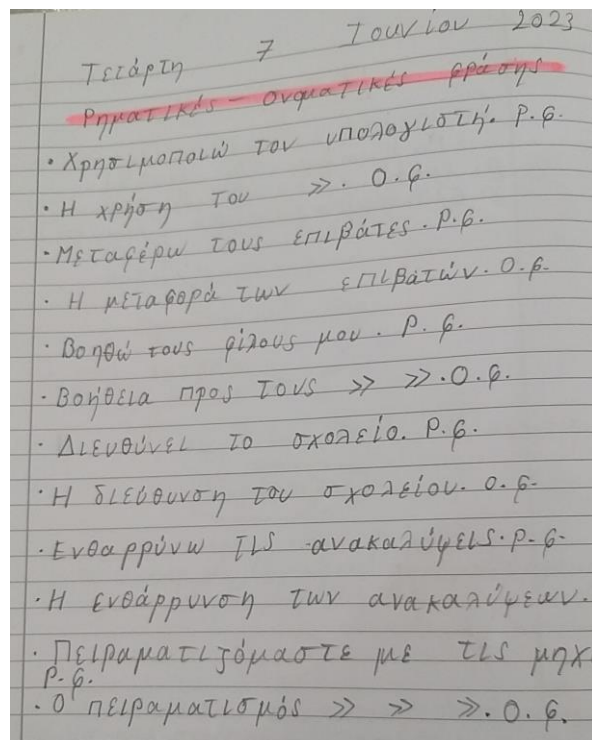 Τετάρτη 7 Ιουνίου 2023
Ρηματικές - ονοματικές φράσης
· Χρησιμοποιώ τον υπολογιστή. Ρ.φ.
· Η χρήση του ». Ο.φ.
· Μεταφέρω τους επιβάτες. Ρ.φ.
· Η μεταφορά των επιβατών. Ο.φ.
· Βοηθώ τους φίλους μου. Ρ.φ.
· Βοήθεια προς τους » ». Ο.φ.
· Διευθύνει το σχολείο. Ρ.φ.
· Η διεύθυνση του σχολείου. Ο.φ.
· Ενθαρρύνω τις ανακαλύψεις. Ρ.φ.
· Η ενθάρρυνση των ανακαλύψεων.
· Πειραματιζόμαστε με τις μηχ
Ρ.φ.
· Ο πειραματισμός » » ». Ο.φ.